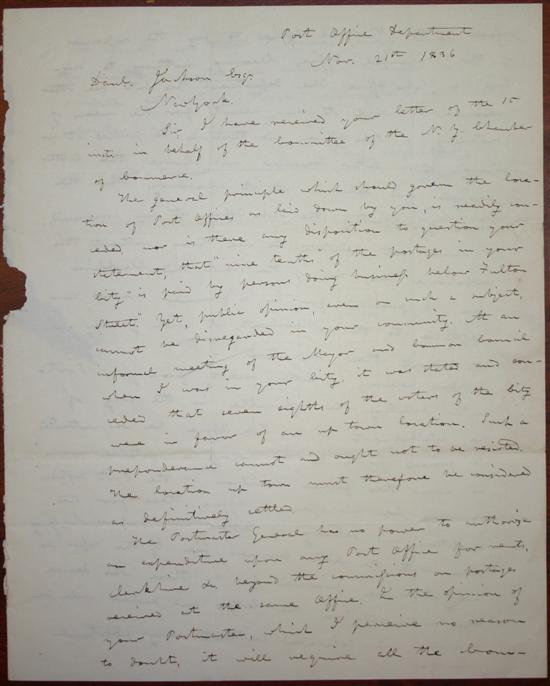 Post Office Department
Nov. 21st 1836
Danl. Jackson Esqr
New York.
Sir, I have received your letter of the 15
inst. in behalf of the Committee of the N. Y. Chamber
of Commerce.
The general principle which should govern the loca-
tion of Post Offices as laid down by you, is readily con-
ceded, nor is there any disposition to question your
statement, that "nine tenths of the postages in your
City" is paid by persons doing business below Fulton
Street." Yet, public opinion, even on such a subject,
cannot be disregarded in your community. At an
informal meeting of the Mayor and Common Council
when I was in your City, it was stated and con-
ceded that seven eighths of the voters of the City
were in favor of an up town location. Such a
preponderance cannot and ought not to be resisted.
The location up town must therefore be considered
as definitively settled
The Postmaster General has no power to authorize
an expenditure upon any Post Office for rents,
clerkhire &c beyond the commissions on postages
received at the same Office. In the opinion of
your Postmaster, which I perceive no reason
to doubt, it will require all the Com-